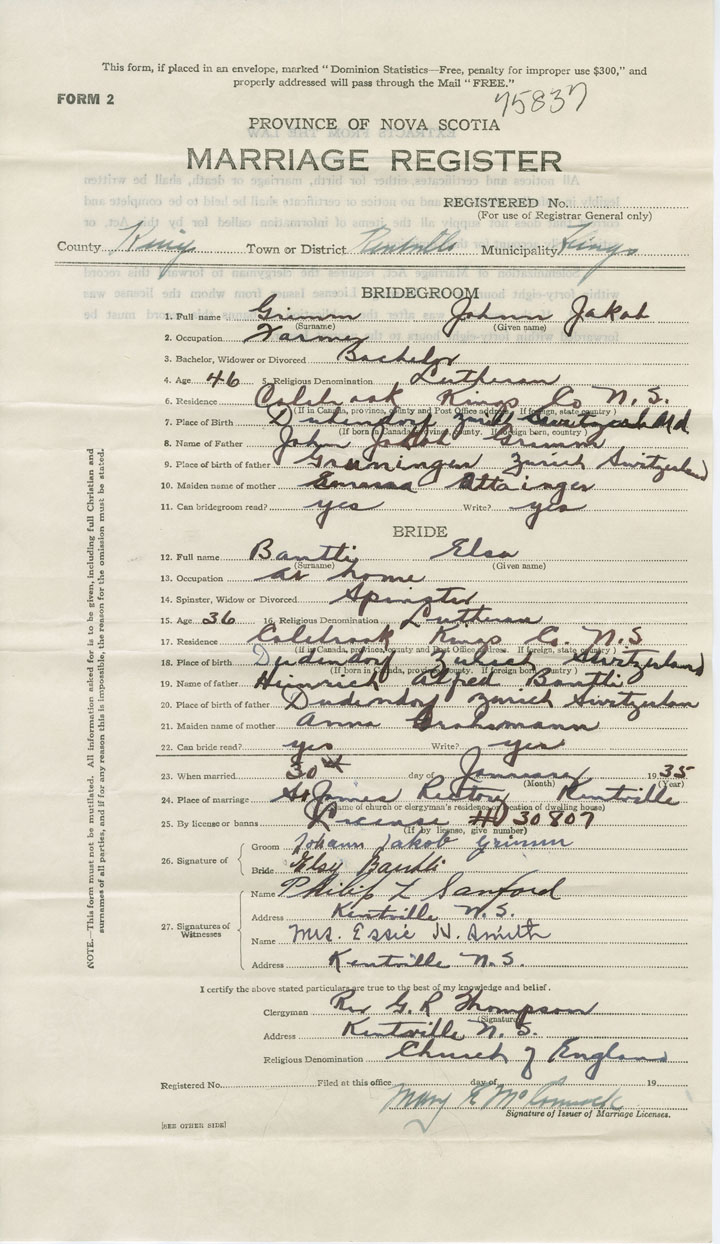 This form, if placed in an envelope, marked "Dominion Statistics—Free, penalty for improper use $300," and
properly addressed will pass through the Mail "FREE."
FORM 2
75837
PROVINCE OF NOVA SCOTIA
MARRIAGE REGISTER
REGISTERED No.
(For use of Registrar General only)
County Kings Town or District Kentville Municipality Kings
BRIDEGROOM
1. Full name Grimm Johann Jakob
(Surname) (Given name)
2. Occupation Farmer
3. Bachelor, Widower or Divorced Bachelor
4. Age 46 5. Religious Denomination Lutheran
6. Residence Colebrook Kings Co N.S.
(If in Canada, province, county and Post Office address. If foreign, state country)
7. Place of Birth Dudendorf Zurich Switzerland
(If born in Canada, province, county. If foreign born, country)
8. Name of Father John Jakob Grimm
9. Place of birth of father Gruningen Zurich Switzerland
10. Maiden name of mother Ottainger
11. Can bridegroom read? yes Write? yes
BRIDE
12. Full name Bantli Elsa
(Surname) (Given name)
13. Occupation at home
14. Spinster, Widow or Divorced Spinster
15. Age 36 16. Religious Denomination Lutheran
17. Residence Colebrook Kings Co. N.S
(If in Canada, province, county and Post Office address. If foreign, state country)
18. Place of birth Dudendorf Zurich Switzerland
(If born in Canada, province, county. If foreign born, country)
19. Name of father Heinrich Alfred Bantli
20. Place of birth of father Dudendorf Zurich Switzerlan
21. Maiden name of mother Anna Grohsmann
22. Can bride read? yes Write? yes
23. When married 30th day of January 1935
(Month) (Year)
24. Place of marriage St James Rectory Kentville
(Name of church or clergyman's residence or location of dwelling house)
25. By license or banns License # 30807
(If by license, give number)
26. Signature of Groom Johann Jakob Grimm
Bride Elsy Bantli
27. Signatures of Witnesses Name Philip L Sanford
Address Kentville N.S.
Name Mrs. Essie H. Smith
Address Kentville N.S.
I certify the above stated particulars are true to the best of my knowledge and belief.
Clergyman Rev G. R Thompson
(Signature)
Address Kentville N.S.
Religious Denomination Church of England
Registered No. Filed at this office day of 19
Mary E McCormick
Signature of Issuer of Marriage Licenses.
[SEE OTHER SIDE]
NOTE.—This form must not be mutilated. All information asked for is to be given, including full Christian and
surnames of all parties, and if for any reason this is impossible, the reason for the omission must be stated.